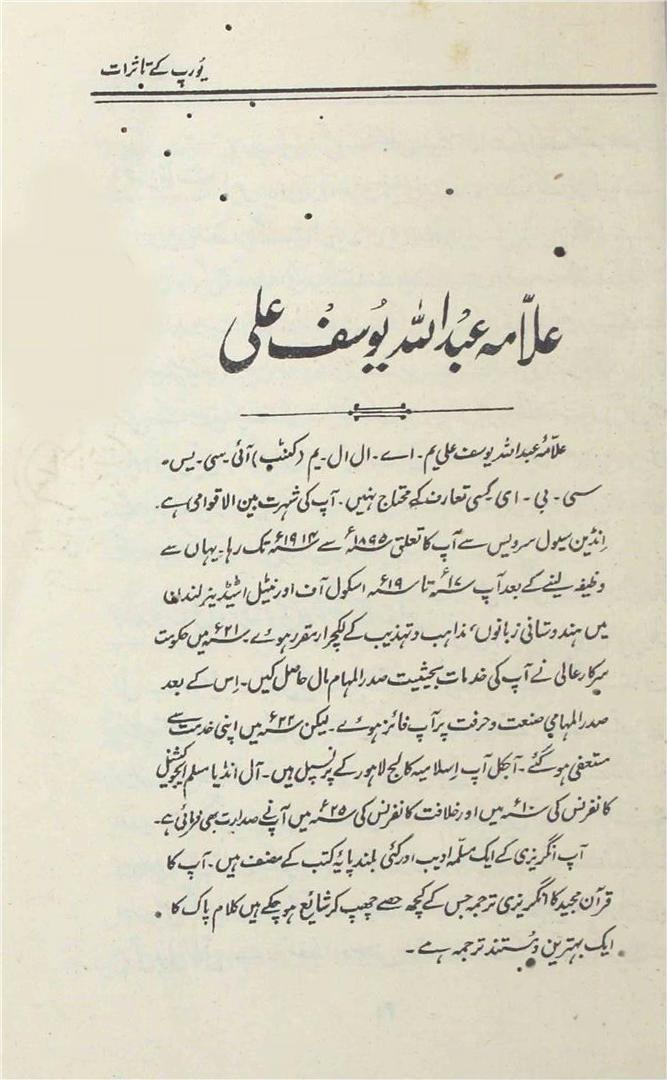 یورپ کے تاثرات
علّامہ عبدُ اللہ یُوسُف علی
علّامہ عبداللہ یوسف علی یم۔ اے۔ ال ال۔ یم (کنٹب) آئی۔ سی۔ یس۔
سی۔ بی۔ ای کسی تعارف کے محتاج نہیں۔ آپ کی شہرت بین الاقوامی ہے۔
انڈین سیول سرویس سے آپ کا تعلق ۱۸۹۵ء سے ۱۹۱۴ء تک رہا۔ یہاں سے
وظیفہ لینے کے بعد آپ ۱۷ء تا ۱۹ء اسکول آف اورنیٹل اسٹیڈیز لندن
میں ہندوستانی زبانوں، مذاہب و تہذیب کے لکچرار مقرر ہوے۔ ۲۱ء میں حکومت
سرکار عالی نے آپ کی خدمات بحیثیت صدر المہام مال حاصل کیں۔ اِس کے بعد
صدر المہامی صنعت و حرفت پر آپ فائز ہوے۔ لیکن ۲۲ء میں اپنی خدمت سے
مستعفی ہو گئے۔ آجکل آپ اِسلامیہ کالج لاہور کے پرنسپل ہیں۔ آل انڈیا مسلم ایجوکیشنل
کانفرنس کی ۱۰ء میں اور خلافت کانفرنس کی ۲۵ء میں آپ نے صدارت بھی فرمائی ہے۔
آپ انگریزی کے ایک مسلّمہ ادیب اور کئی بلند پایہ کتب کے مصنف ہیں۔ آپ کا
قرآن مجید کا انگریزی ترجمہ جس کے کچھ حصے چھپ کر شایع ہو چکے ہیں کلام پاک کا
ایک بہترین و مستند ترجمہ ہے۔